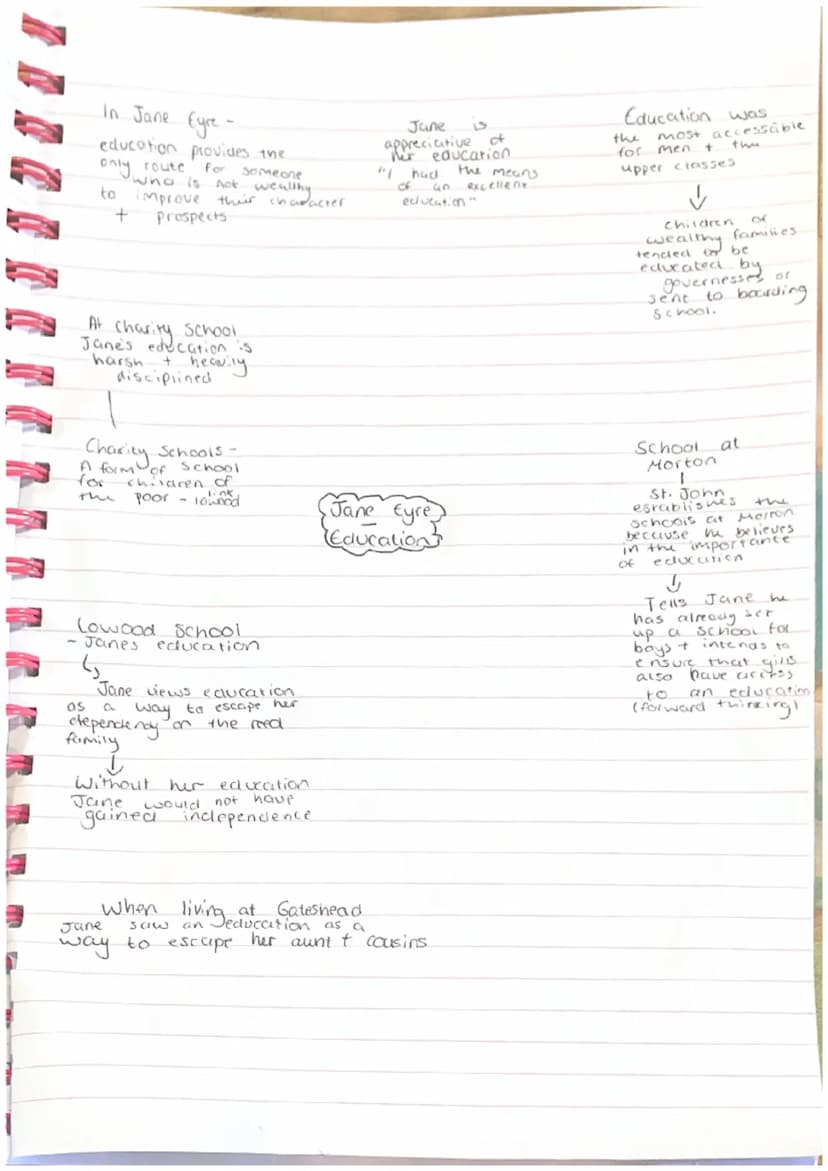 In Jane Eyre -
education provides the
only route for someone
who is not wealthy
to improve their character
+ prospects
Jane is
appreciative of
her education
"I had the means
of an excellent
education"
Education was
the most accessible
for men + the
upper classes
children of
wealthy families
tended to be
educated by
governesses or
sent to boarding
school.
At charity School
Jane's education is
harsh + heavily
disciplined
Charity Schools -
A form of School
for children of
the poor - link lowood
Jane Eyre
-
Education
School at
Morton
St. John
establishes the
schools at Morton
because he believes
in the importance
of education
Tells Jane he
has already set
up a school for
boys + intends to
ensure that girls
also have access
to an education
(forward thinking)
Lowood School
- Janes education
Jane views education
as a way to escape her
dependency on the reed
family
Without her education
Jane would not have
gained independence
When living at Gateshead
Jane saw an education as a
way to escape her aunt + cousins